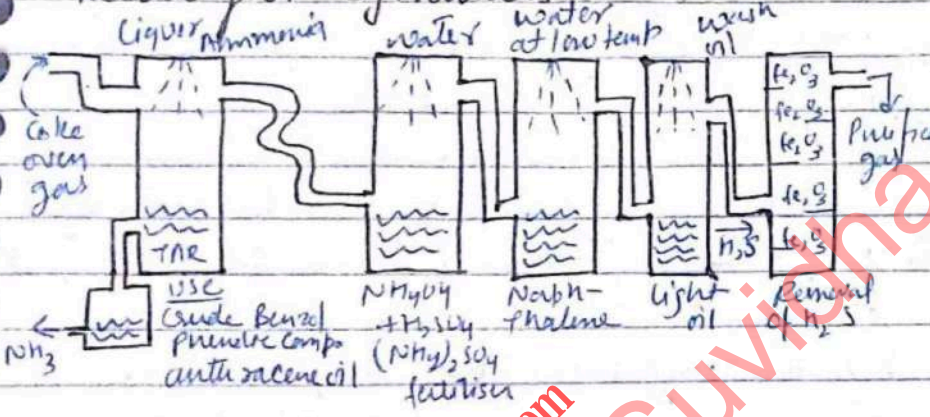 Liquor Ammonia
water
water
at low temp
wash
oil
Coke
oven
gas
Fe2O3
Fe2O3
Fe2O3
Fe2O3
Fe2O3
Purifie
gas
TAR
H2S
NH3
USE
Crude Benzol
Phenolic comp
anthracene oil
NH4OH
+ H2SO4
(NH4)2SO4
fertiliser
Naph-
thalene
Light
oil
Removal
of H2S
Suvidha
om